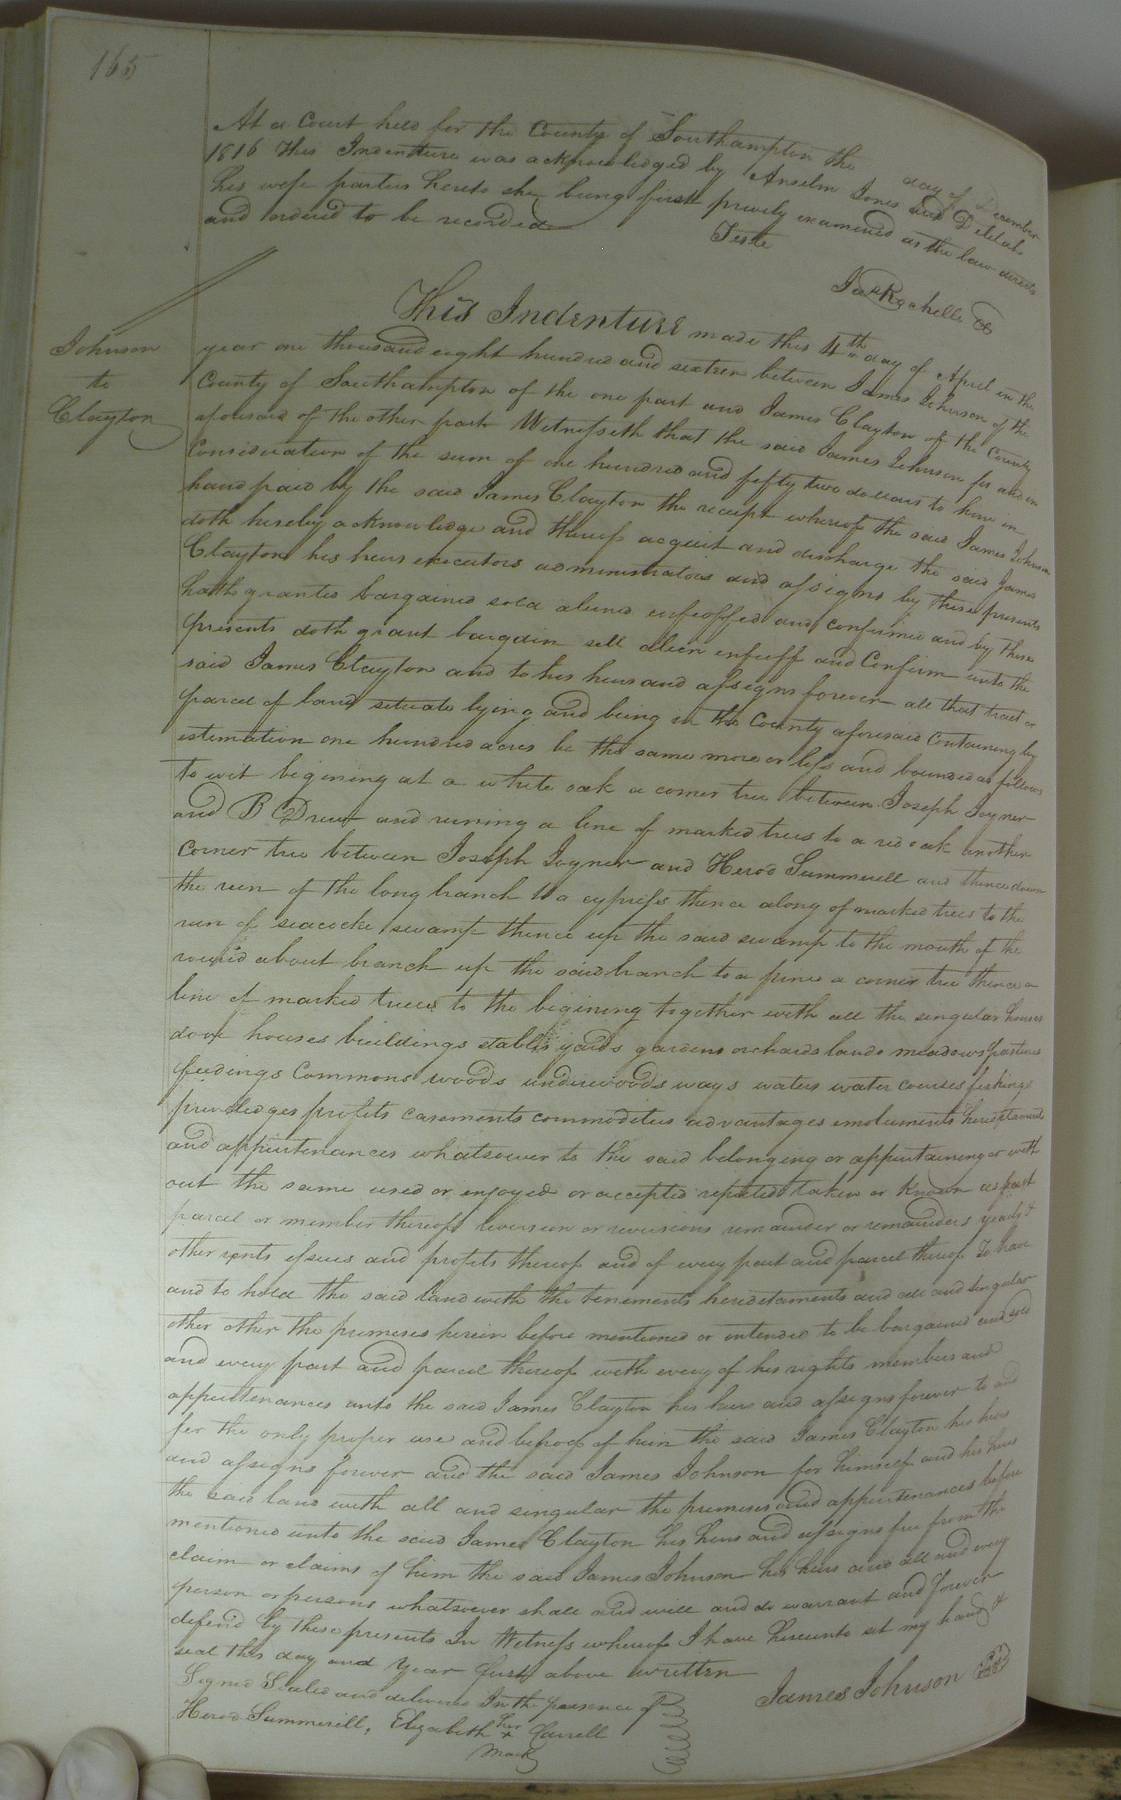 165
At a Court held for the County of Southampton the day of December
1816 This Indenture was acknowledged by Anselm Jones and Delilah
his wife parties hereto she being first privily examined as the law directs
and ordered to be recorded
Teste
Jas Rochelle Cl
Johnson
to
Clayton
This Indenture made this 4th day of April in the
year one thousand eight hundred and sixteen between James Johnson of the
County of Southampton of the one part and James Clayton of the County
aforesaid of the other part Witnesseth that the said James Johnson for and in
Consideration of the sum of one hundred and fifty two dollars to him in
hand paid by the said James Clayton the receipt whereof the said James Johnson
doth hereby acknowledge and thereof acquit and discharge the said James
Clayton his heirs executors administrators and assigns by these presents
hath granted bargained sold aliened enfeoffed and confirmed and by these
presents doth grant bargain sell alien enfeoff and Confirm unto the
said James Clayton and to his heirs and assigns forever all that tract or
parcel of land situate lying and being in the County aforesaid Containing by
estimation one hundred acres be the same more or less and bounded as follows
to wit begining at a white oak a corner tree between Joseph Joyner
and B Drew and runing a line of marked trees to a red oak another
Corner tree between Joseph Joyner and Herod Summerell and thence down
the run of the long branch to a cypress thence along of marked trees to the
run of seacocke swamp thence up the said swamp to the mouth of the
round about branch up the said branch to a pine a corner tree thence a
line of marked trees to the begining together with all the singular houses
door houses buildings stables yards gardens orchards lands meadows pastures
feedings Commons woods underwoods ways waters water courses fishings
priviledges profits easements commodities advantages emoluments hereditaments
and appurtenances whatsoever to the said belonging or appurtaining or with
out the same used or enjoyed or accepted reputed taken or known as part
parcel or member thereof reversion or reversions remainder or remainders yearly &
other rents issues and profits thereof and of every part and parcel thereof To have
and to hold the said land with the tenements hereditaments and all and singular
other other the premises herein before mentioned or intended to be bargained and sold
and every part and parcel thereof with every of his rights members and
appurtenances unto the said James Clayton his heirs and assigns forever to and
for the only proper use and behoof of him the said James Clayton his heirs
and assigns forever and the said James Johnson for himself and his heirs
the said land with all and singular the premises and appurtenances before
mentioned unto the said James Clayton his heirs and assigns free from the
claim or claims of him the said James Johnson his heirs and all and every
person or persons whatsoever shall and will and do warrant and forever
defend by these presents In Witness whereof I have hereunto set my hand &
seal this day and Year first above written
James Johnson
Signed Sealed and delivered In the presence of
Herod Summerell, Elizabeth her x Carrell
mark